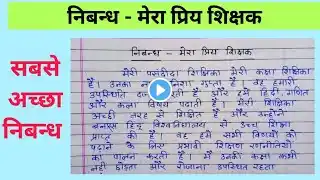 निबन्ध - मेरा प्रिय शिक्षक
सबसे
अच्छा
निबन्ध
निबन्ध - मेरा प्रिय शिक्षक
मेरी पसंदीदा शिक्षिका मेरी कक्षा शिक्षिका
हैं। उनका नाम निशा गुप्ता है। वह हमारी
उपस्थिति और हमें हिन्दी, गणित
और कला विषय पढ़ाती हैं। मेरी शिक्षिका
अच्छी तरह से शिक्षित हैं और उन्होंने
बनारस हिन्दू विश्वविद्यालय से उच्च शिक्षा
प्राप्त की है। वह हमें सभी विषयों को
पढ़ाने के लिए प्रभावी शिक्षण रणनीतियों
का पालन करती हैं। मैं उनकी कक्षा कभी
नहीं छोड़ता और रोजाना उपस्थित रहता